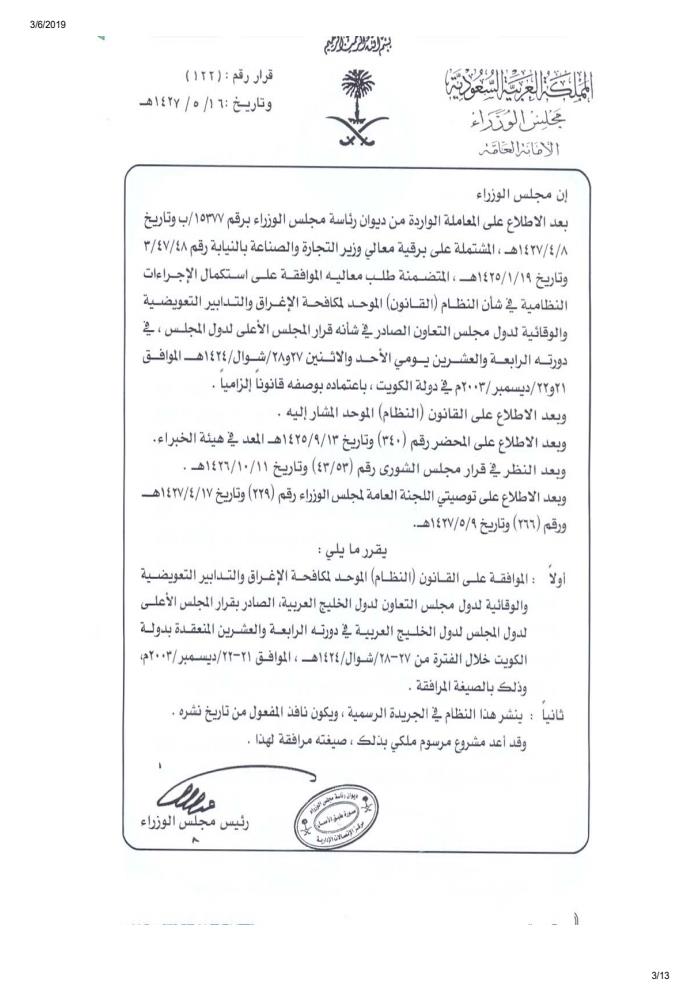 3/6/2019
بسم الله الرحمن الرحيم
المملكة العربية السعودية
مجلس الوزراء
الأمانة العامة
قرار رقم : (١٢٢)
وتاريخ : ١٤٢٧/٥/١٦هـ
إن مجلس الوزراء
بعد الاطلاع على المعاملة الواردة من ديوان رئاسة مجلس الوزراء برقم ١٥٣٧٧/ب وتاريخ
١٤٢٧/٤/٨هـ ، المشتملة على برقية معالي وزير التجارة والصناعة بالنيابة رقم ٣/٤٧/٤٨
وتاريخ ١٤٢٥/١/١٩هـ ، المتضمنة طلب معاليه الموافقة على استكمال الإجراءات
النظامية في شأن النظام (القانون) الموحد لمكافحة الإغراق والتدابير التعويضية
والوقائية لدول مجلس التعاون الصادر في شأنه قرار المجلس الأعلى لدول المجلس ، في
دورته الرابعة والعشرين يومي الأحد والاثنين ٢٧و٢٨/شوال/١٤٢٤هـ الموافق
٢١و٢٢/ديسمبر/٢٠٠٣م في دولة الكويت ، باعتماده بوصفه قانوناً إلزامياً .
وبعد الاطلاع على القانون (النظام) الموحد المشار إليه .
وبعد الاطلاع على المحضر رقم (٣٤٠) وتاريخ ١٤٢٥/٩/١٣هـ المعد في هيئة الخبراء.
وبعد النظر في قرار مجلس الشورى رقم (٤٣/٥٣) وتاريخ ١٤٢٦/١٠/١١هـ .
وبعد الاطلاع على توصيتي اللجنة العامة لمجلس الوزراء رقم (٢٢٩) وتاريخ ١٤٢٧/٤/١٧هـ
ورقم (٢٦٦) وتاريخ ١٤٢٧/٥/٩هـ.
يقرر ما يلي :
أولاً : الموافقة على القانون (النظام) الموحد لمكافحة الإغراق والتدابير التعويضية
والوقائية لدول مجلس التعاون لدول الخليج العربية، الصادر بقرار المجلس الأعلى
لدول المجلس لدول الخليج العربية في دورته الرابعة والعشرين المنعقدة بدولة
الكويت خلال الفترة من ٢٧-٢٨/شوال/١٤٢٤هـ ، الموافق ٢١-٢٢/ديسمبر/٢٠٠٣م،
وذلك بالصيغة المرافقة .
ثانياً : ينشر هذا النظام في الجريدة الرسمية ، ويكون نافذ المفعول من تاريخ نشره .
وقد أعد مشروع مرسوم ملكي بذلك ، صيغته مرافقة لهذا .
رئيس مجلس الوزراء
ديوان رئاسة مجلس الوزراء
صورة طبق الأصل
مركز الاتصالات الإدارية
3/13